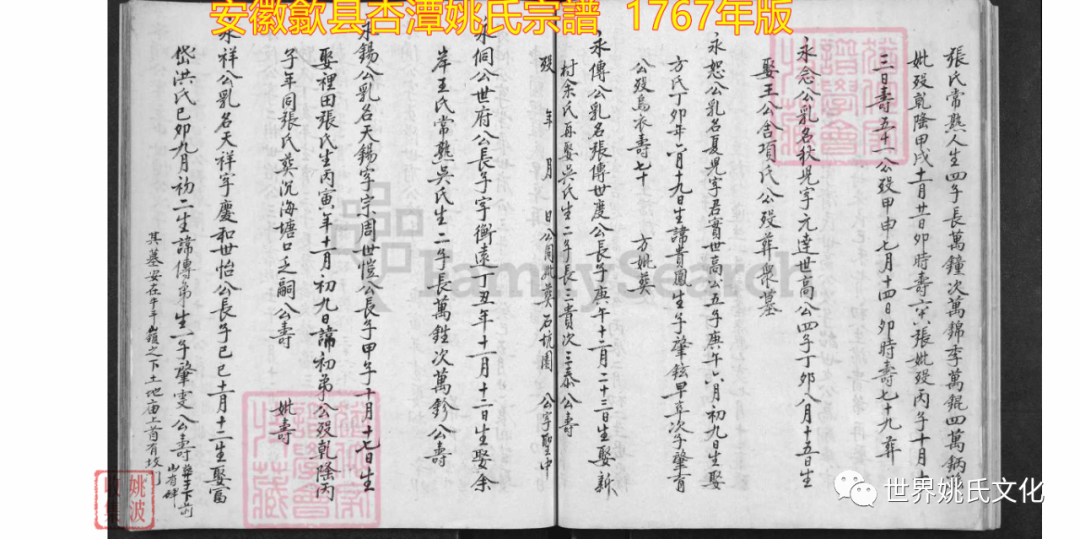 安徽歙县杏潭姚氏宗譜 1767年版
張氏常熟人生四子長萬鐘次萬錦季萬錕四萬鈵
妣歿乾隆甲戌十月廿日卯時壽六張妣歿丙子十月
三日壽五十一公歿甲申七月十四日卯時壽七十九葬
永念公乳名秋児字元達世高公四子丁卯八月十五日生
娶王公舍項氏公歿葬衆墓
永恕公乳名夏児字君實世高公五子庚午六月初九日生娶
方氏丁卯年六月十九日生諱貴鳳生子肇鉉早卒次子肇有
公歿烏衣壽七十 方妣葬
永傳公乳名張傳世度公長子庚午十二月二十三日生娶新
村余氏再娶吳氏生二子長三貴次三泰公壽
歿 年 月 日公同妣葬石坑園 公字聖中
永侗公世府公長子字衡遠丁丑年十一月十二日生娶余
岸王氏常熟吳氏生二子長萬鉎次萬鉁公壽
永錫公乳名天錫字宗周世愷公長子甲午十月十七日生
娶裡田張氏生丙寅年十一月初九日諱初弟公歿乾隆丙
子年同張氏葬沉海塘口乏嗣公壽 妣壽
永祥公乳名天祥字慶和世怡公長子己巳十一月十二生娶富
岱洪氏己卯九月初二生諱傳弟生一子肇雯公壽
其墓安在牛平嶺之下土地庙上首有坟
FamilySearch
姚波
收集
世界姚氏文化